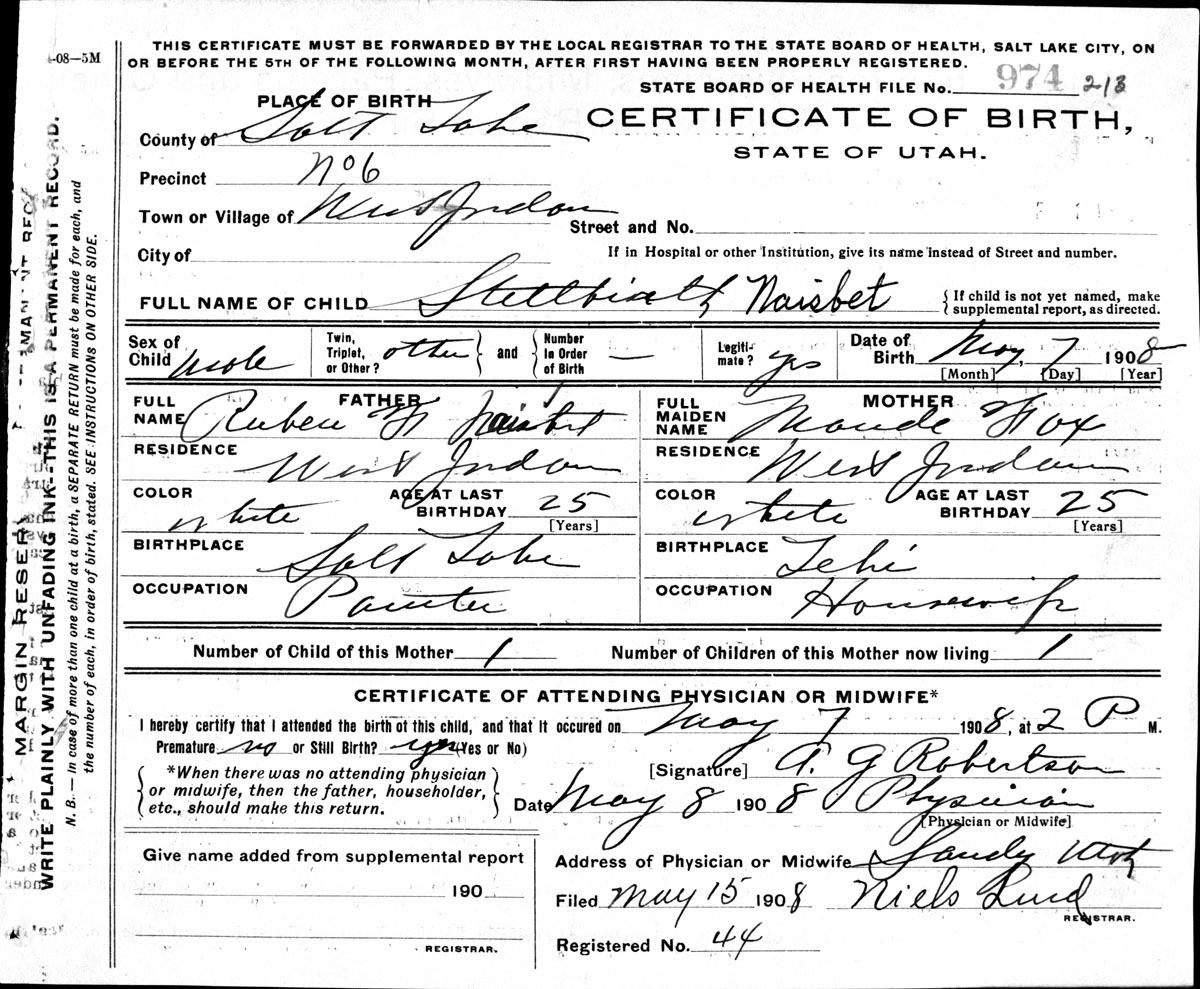 4-08—5M
THIS CERTIFICATE MUST BE FORWARDED BY THE LOCAL REGISTRAR TO THE STATE BOARD OF HEALTH, SALT LAKE CITY, ON
OR BEFORE THE 5TH OF THE FOLLOWING MONTH, AFTER FIRST HAVING BEEN PROPERLY REGISTERED.
STATE BOARD OF HEALTH FILE No. 974 213
PLACE OF BIRTH
CERTIFICATE OF BIRTH,
STATE OF UTAH.
County of Salt Lake
Precinct No 6
Town or Village of West Jordan
Street and No.
City of
If in Hospital or other Institution, give its name instead of Street and number.
FULL NAME OF CHILD Stillbirth Naisbet
{If child is not yet named, make
supplemental report, as directed.
Sex of Child male
Twin, Triplet, or Other? other } and { Number In Order of Birth —
Legiti-mate? yes
Date of Birth May, 7 1908
[Month] [Day] [Year]
FATHER
FULL NAME Ruben W Naisbet
RESIDENCE West Jordan
COLOR white AGE AT LAST BIRTHDAY 25
[Years]
BIRTHPLACE Salt Lake
OCCUPATION Painter
MOTHER
FULL MAIDEN NAME Maude Fox
RESIDENCE West Jordan
COLOR white AGE AT LAST BIRTHDAY 25
[Years]
BIRTHPLACE Lehi
OCCUPATION Housewife
Number of Child of this Mother 1 Number of Children of this Mother now living 1
CERTIFICATE OF ATTENDING PHYSICIAN OR MIDWIFE*
I hereby certify that I attended the birth of this child, and that it occured on May 7 1908, at 2 P M.
Premature no or Still Birth? yes (Yes or No)
{*When there was no attending physician
or midwife, then the father, householder,
etc., should make this return.}
[Signature] A. G Robertson
Date May 8 1908 Physician
[Physician or Midwife]
Address of Physician or Midwife Sandy Utah
Filed May 15 1908 Niels Lind
REGISTRAR.
Registered No. 44
Give name added from supplemental report
190
REGISTRAR.
MARGIN RESERV
WRITE PLAINLY WITH UNFADING INK--THIS IS A PERMANENT RECORD.
N. B. — In case of more than one child at a birth, a SEPARATE RETURN must be made for each, and
the number of each, in order of birth, stated. SEE INSTRUCTIONS ON OTHER SIDE.